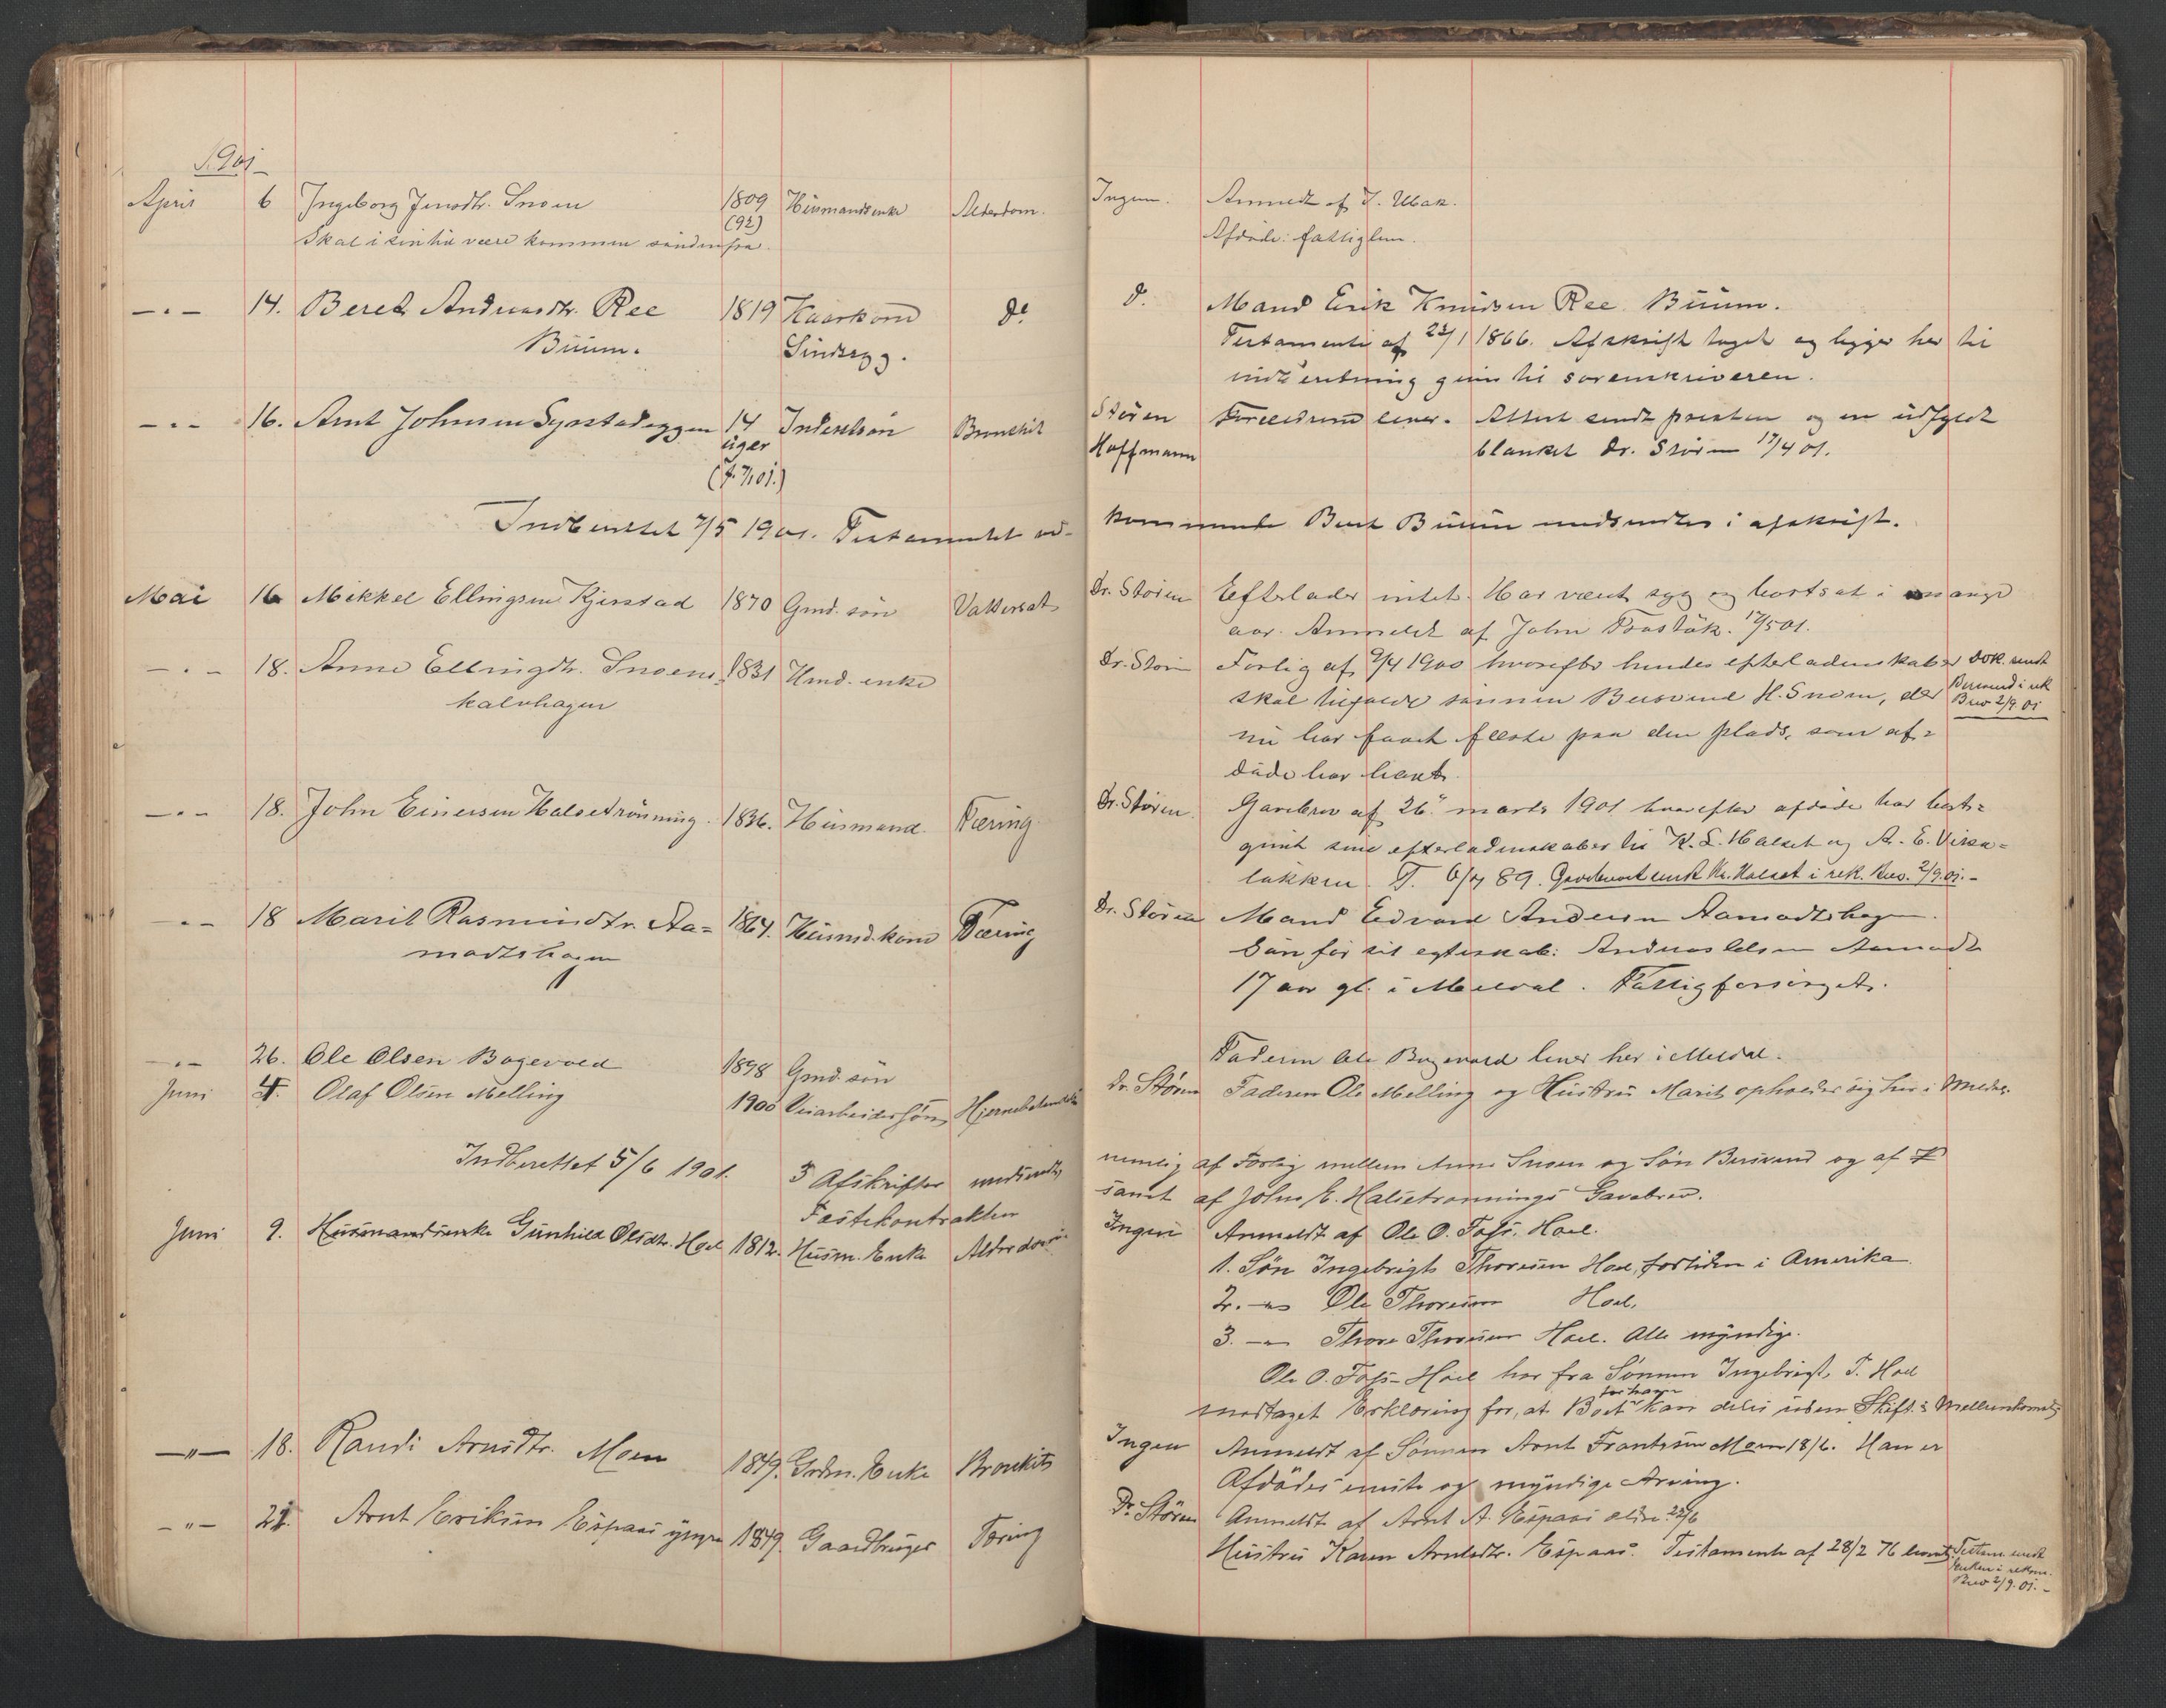 1901
April 6 Ingeborg Jensdtr. Snoen 1809 (92) Husmandsenke Alderdom. Ingen. Anmeldt af J. Ubak.
Skal i sin tid være kommen søndenfra. Afdøde: fattiglem.
— " — 14. Beret Andreasdtr. Ree 1819 Kaarkone do d. Mand Erik Knudsen Ree Buum.
Buum. Sindssyg. Testamente af 23/1 1866. Afskrift taget og ligger her til
indberetning given til sorenskriveren.
— " — 16. Arnt Johnsen Syrstadeggen 14 uger Inderstsøn Bronchit Støren Forældrene lever. Attest sendt presten og en udfyldt
(f. 7/1 01.) Hoffmann blanket Dr. Støren 17/4 01.
Indberettet 7/5 1901. Testamentet ved-kommende Beret Buum medsendtes i afskrift.
Mai 16 Mikkel Ellingsen Kjerstad 1870 Gmd. søn Vattersot Dr. Støren Efterlader intet. Har været syg og bortsat i mange
aar. Anmeldt af John 17/5 01.
— " — 18. Anne Ellingdtr. Snoens- 1831 Hmd. enke Dr. Støren Forlig af 9/4 1900 hvorefter hendes efterladenskaber Dok. sendt
kalvhagen skal tilfalde sønnen Bersvend H. Snoen, der Bersvend i rek.
Brev 2/9 01
nu har faaet fæste paa den plads, som af-
døde har havt.
— " — 18. John Einersen Halsetrønning. 1836. Husmand. Tæring. Dr. Støren. Gavebrev af 26. marts 1901 hvorefter afdøde har bort-
givit sine efterladenskaber til K. L. Halset og A. E.
løkken. T. 6/7 89. Gavebrevet sendt Kr. Halset i rek. Brev. 2/9.01.-
— " — 18 Marit Rasmusdtr. Aa- 1864. Husmd. kone Tæring Dr. Støren Mand Edvard Andersen Aamodtshagen.
modtshagen Søn før sit egteskab: Andreas Olsen Aamodt
17 aar gl. i Meldal. Fattigforsørget.
— " — 26. Ole Olsen Bogevold 1898 Gmd. søn Faderen Ole Bogevold lever her i Meldal.
Juni 4. Olaf Olsen Melling 1900 Veiarbeidersøn Dr. Støren Faderen Ole Melling og Hustru Marit opholder sig her i Meldal.
Indberettet 5/6 1901. 3 Afskrifter medsendt, nemlig af Forlig mellem Anne Snoen og Søn Bersvend og af
Fæstekontrakten samt af John E. Halsetrønnings Gavebrev.
Juni 9. Husmandsenke Gunhild Olsdtr. Hoel 1812. Husm. Enke Alderdom Ingen Anmeldt af Ole O. Foss-Hoel.
1. Søn Ingebrigt Thoresen Hoel, fortiden i Amerika.
2. —"— Ole Thoresen Hoel.
3. —"— Thore Thoresen Hoel. Alle myndige.
Ole O. Foss-Hoel har fra Sønnen Ingebrigt T. Hoel
modtaget Erklæring for, at Boet for ham kan deles uden Skift. s Mellemkomst.
— " — 18. Randi Arnsdtr. Moen 1849. Grdm. Enke Bronkit Ingen Anmeldt af Sønnen Arnt Frantzsen Moen 18/6. Han er
Afdødes eneste og myndige Arving.
— " — 21. Arnt Eriksen Espaas yngre 1849. Gaardbruger Tæring Dr. Støren Anmeldt af Arnt A. Espaas ældre 22/6
Hustru Karen Arntsdtr. Espaas. Testamente af 28/2 76 Testam. sendt
Enken i rekom.
Brev 2/9.01.-